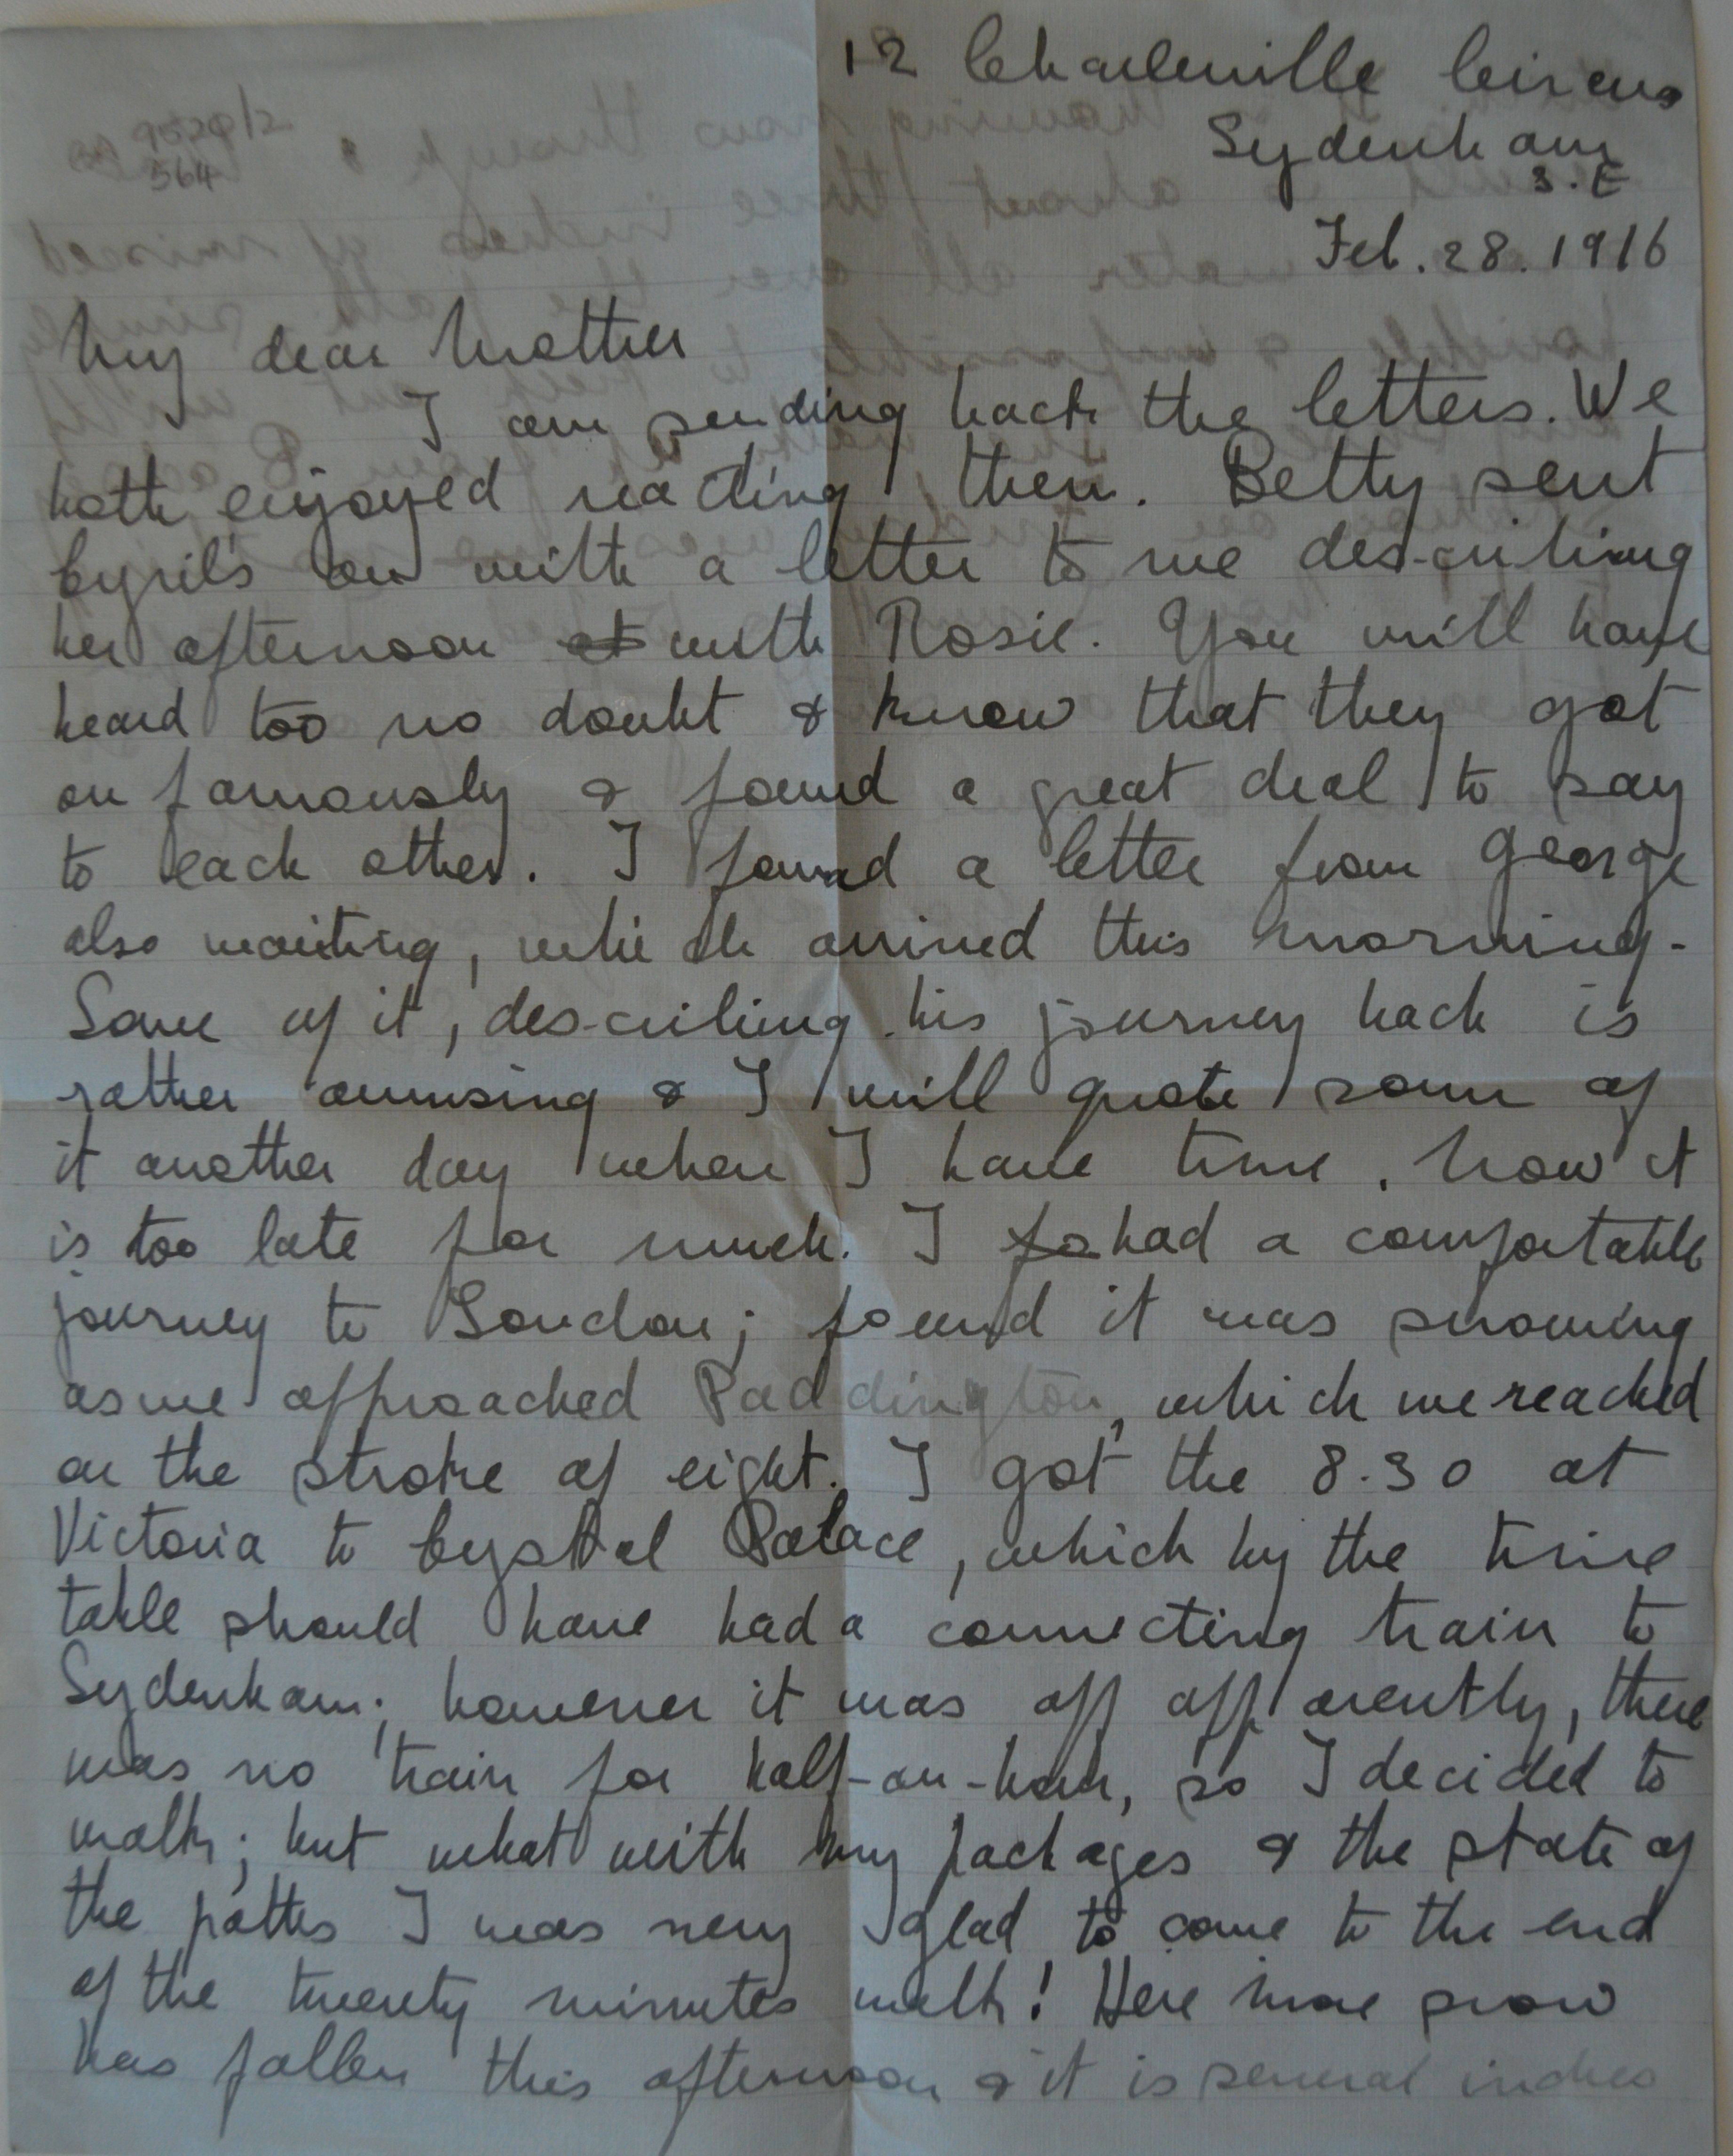 12 Charleville Circus
Sydenham
S.E
Feb. 28. 1916
9520/2
564
My dear Mother
I am sending back the letters. We
both enjoyed reading them. Betty sent
Cyril's on with a letter to me des-cribing
her afternoon at with Rosie. You will have
heard too no doubt & know that they got
on famously & found a great deal to say
to each other. I found a letter from George
also waiting, which arrived this morning.
Some of it, des-cribing his journey back is
rather amusing & I will quote some of
it another day when I have time. Now it
is too late for much. I fo had a comfortable
journey to London; found it was snowing
as we approached Paddington, which we reached
on the stroke of eight. I got the 8.30 at
Victoria to Crystal Palace, which by the time
table should have had a connecting train to
Sydenham; however it was off apparently, there
was no train for half-an-hour, so I decided to
walk; but what with my packages & the state of
the paths I was very glad to come to the end
of the twenty minutes walk! Here more snow
has fallen this afternoon & it is several inches